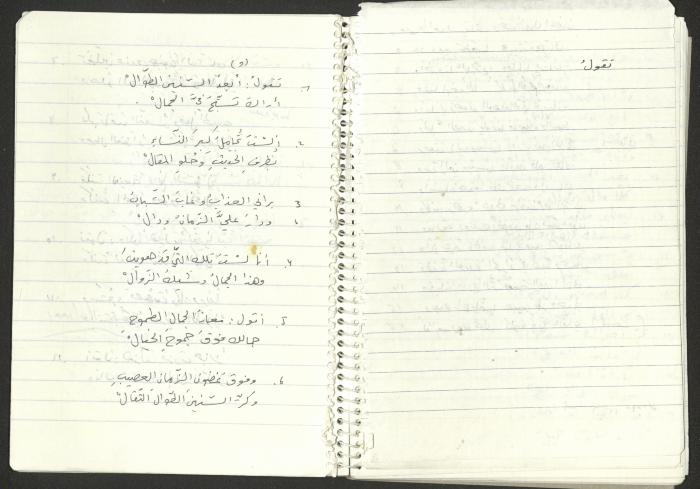 (و)
١. تقولُ: أبعدَ السّنينِ الطّوالْ
أراكَ تسبّحُ فيَّ الجمالْ
٢. ألستَ تجاملُ كبرَ النّساءِ
بظرفِ الحديثِ وحلوِ المقالْ
٣. براني العذابُ وغابَ الشّبابُ
ودارَ عليَّ الزّمانُ ودالْ
٤. أنا لستُ تلكَ التي قد هويتَ
وهذا الجمالُ وشيكُ الزّوالْ
٥. أقولُ: معاذَ الجمالِ الطموحِ
جمالك فوقَ جموحِ الخيالْ
٦. وفوق غضونِ الزّمانِ العصيبِ
وكرِّ السّنينَ الطّوالِ الثّقالْ
تقولُ